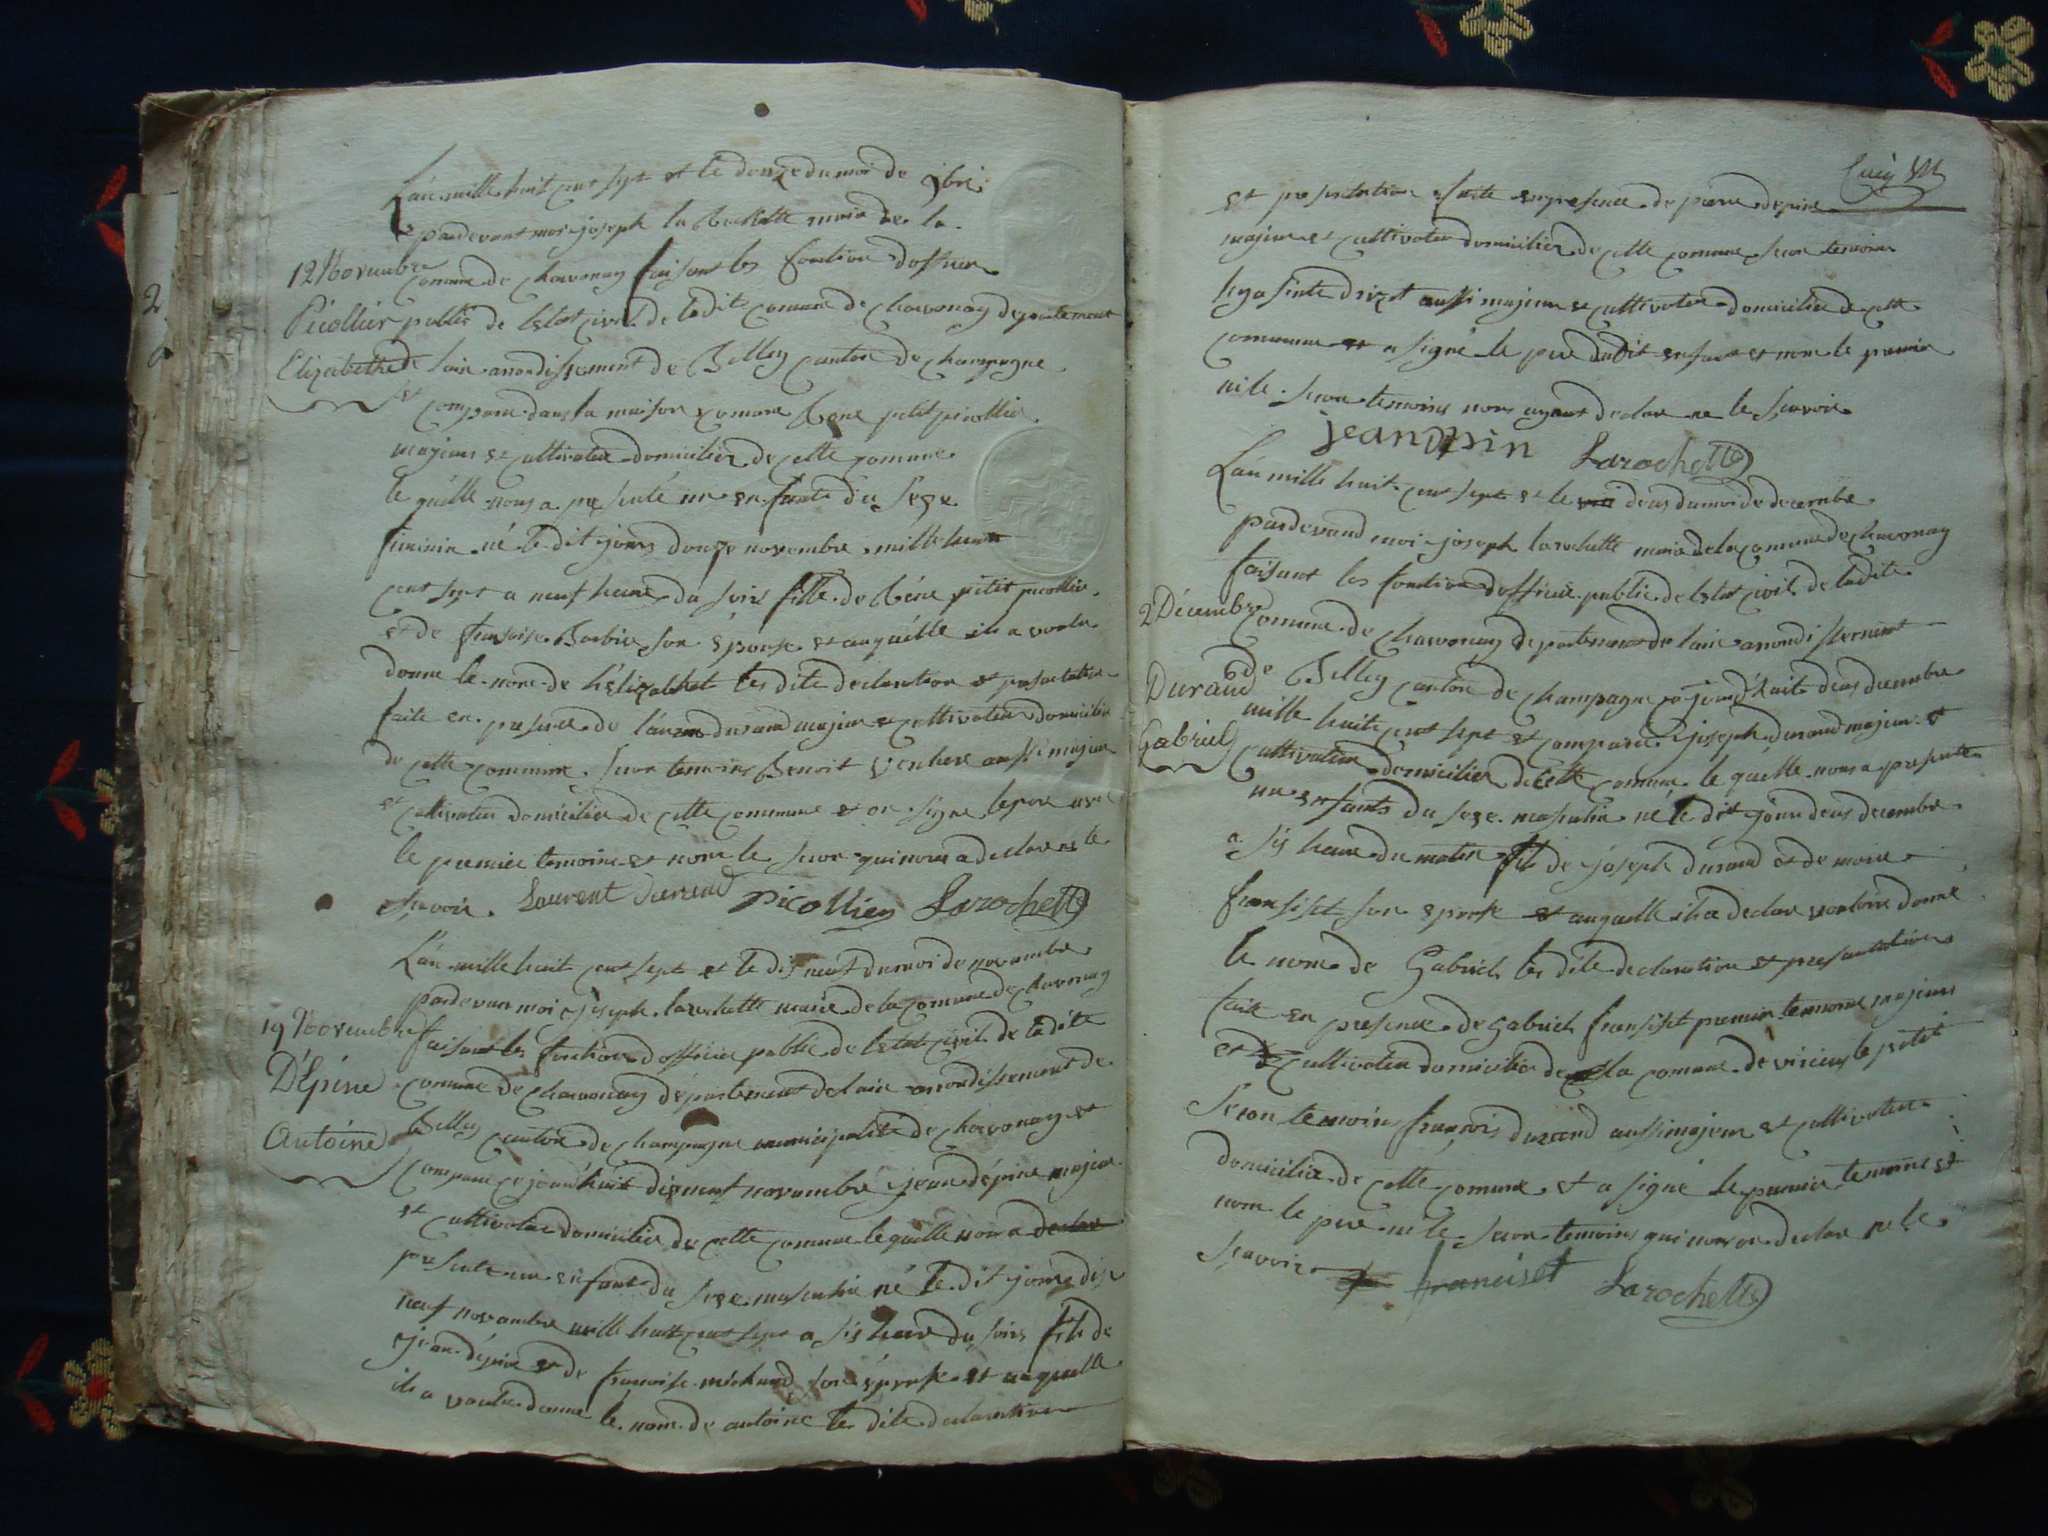 L'an mille huit cent sept et le douze du moi de 9bre
pardevant moi joseph la Rochette maire de la
12 Novembre
comune de Chavonay faisant les fonction d'officier
Picollier
public de l'etat civil de la dite comune de Chavonay departement
Elizabethe
de lain arrondissement de Belley canton de champagne
et compare dans la maison comune Rene petit picollier
majeur et cultivateur domicilier de cette comune
le quélle nous a presenté un enfants du sexe
feminin né le dit jours douze novembre mille huit
cent sept a neuf heure du soir fille de Réne petit picollier
et de fransoise Barbier son épouse et auquélle ils a voulu
donne le nom de hélizabthet les dite declaration et presentation
faite en presence de laurend durand majeur et cultivateur domicilier
de cette commune secon temoins Benoit aussi majeur
et cultivateur domicilier de cette commune et on signe le pere avec
le premier temoins et nom le secon qui nous a declare ne le
scavoir. Laurent durand Picollier Larochette
L'an mille huit cent sept et le dis neuf du moi de novembre
pardevan moi joseph larochette maire de la comune de Chavonay
19 Novembre
faisant les fonction d'officier public de l'etat civil de la dite
D'Épine
comune de Chavonay département de lain arrondissement de
Antoine
Belley canton de champagne municipalité de Chavonay et
compare ce jourd'huit dixneuf novembre jean dépine majeur
et cultivateur domicilier de cette comune le quélle nous a declare
presente un enfant du sexe masculin né le dit jours dix
neuf novembre mille huit cent sept a sis heure du soir fils de
jean dépine et de francoise michaud son épouse et auquélle
ils a voulu donne le nom de antoine les dite declaration
et presentation faite en presence de piere depine
majeur et cultivateur domicilier de cette comune secon temoins
aussi majeur et cultivateur domicilier de cette
commune et a signé le pere dudit enfant et nom le premier
ni le secon temoins nous ayant declare ne le scavoir
jean Larochette
L'an mille huit cent sept et le deus du moi de decembre
pardevand moi joseph larochette maire de la comune de Chavonay
faisant les fonction d'officier public de l'etat civil de la dite
2 Décembre
comune de Chavonay departement de lain arrondissement
Durand
de Belley canton de champagne cejourd'huit deus decembre
Gabriel
mille huit cent sept et comparu joseph durand majeur et
cultivateur domicilier de cette comune le quélle nous a presente
un enfants du sexe masculin né le dit jour deus decembre
a sis heure du matin fils de joseph durand et de marie
fransiset son epouse et auquelle ils a declare vouloire donné
le nom de Gabriel les dite declaration et presentation
faite en presence de gabriel fransiset premier temoins majeur
et cultivateur domicilier de la comune de virieux le petit
secon temoins francois durand aussi majeur et cultivateur
domicilier de cette comune et a signé le premier temoins et
nom le pere ni le secon temoins qui nous on declare ne le
scavoir franciset Larochette